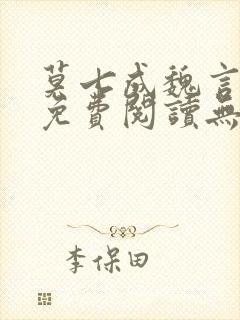 莫七成魏言
免費閱讀無
李保田